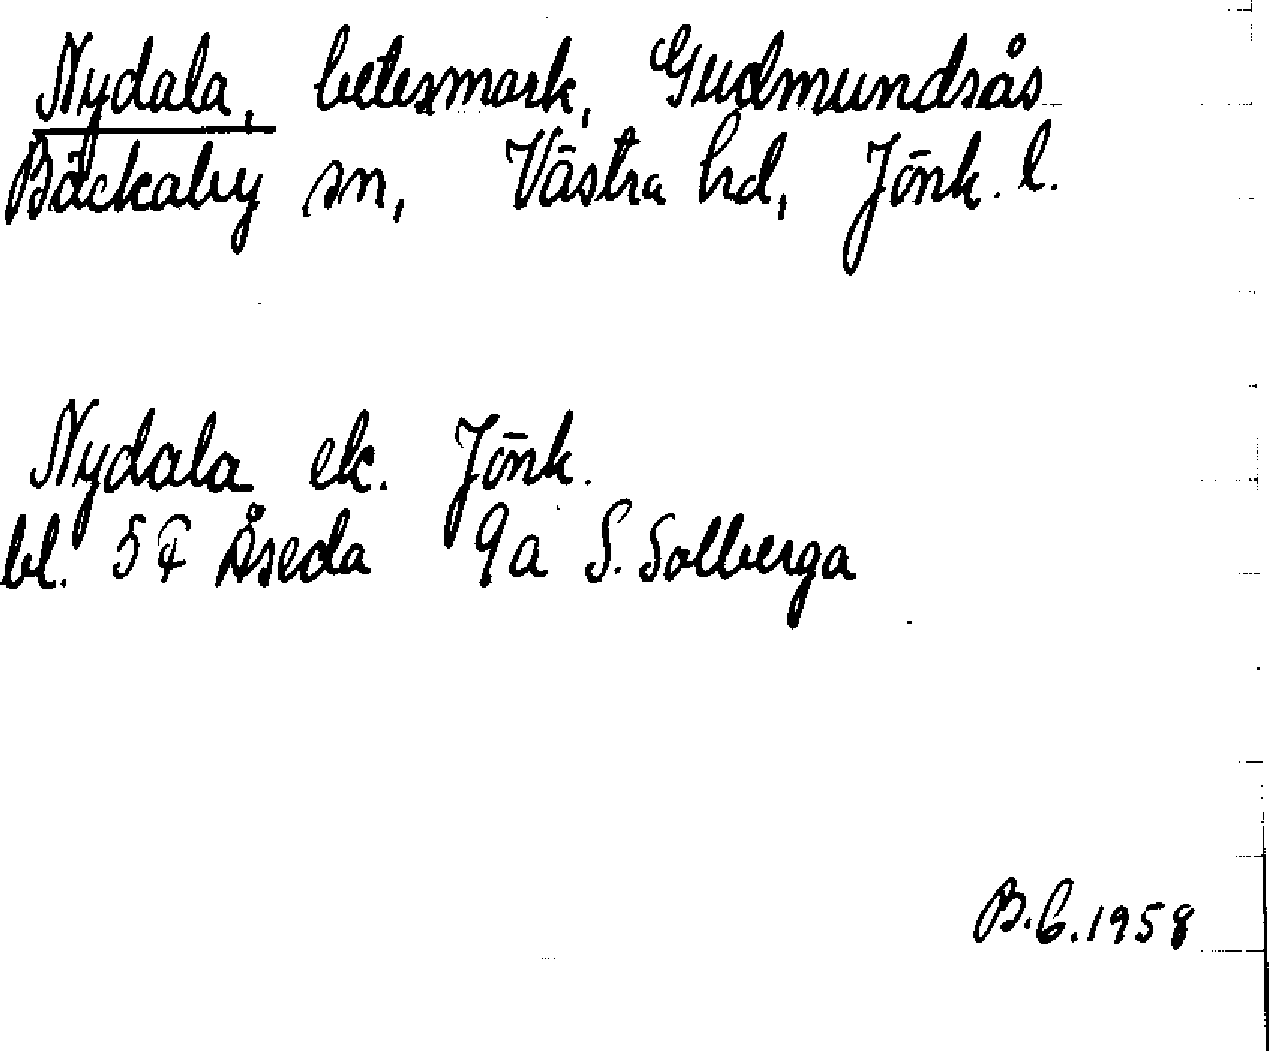 Nydala, betesmark, Gudmundsås
Bäckaby sn, Västra hd, Jönk. l.
Nydala ek. Jönk.
bl. 5F Åseda 9a S. Solberga
B.C. 1958